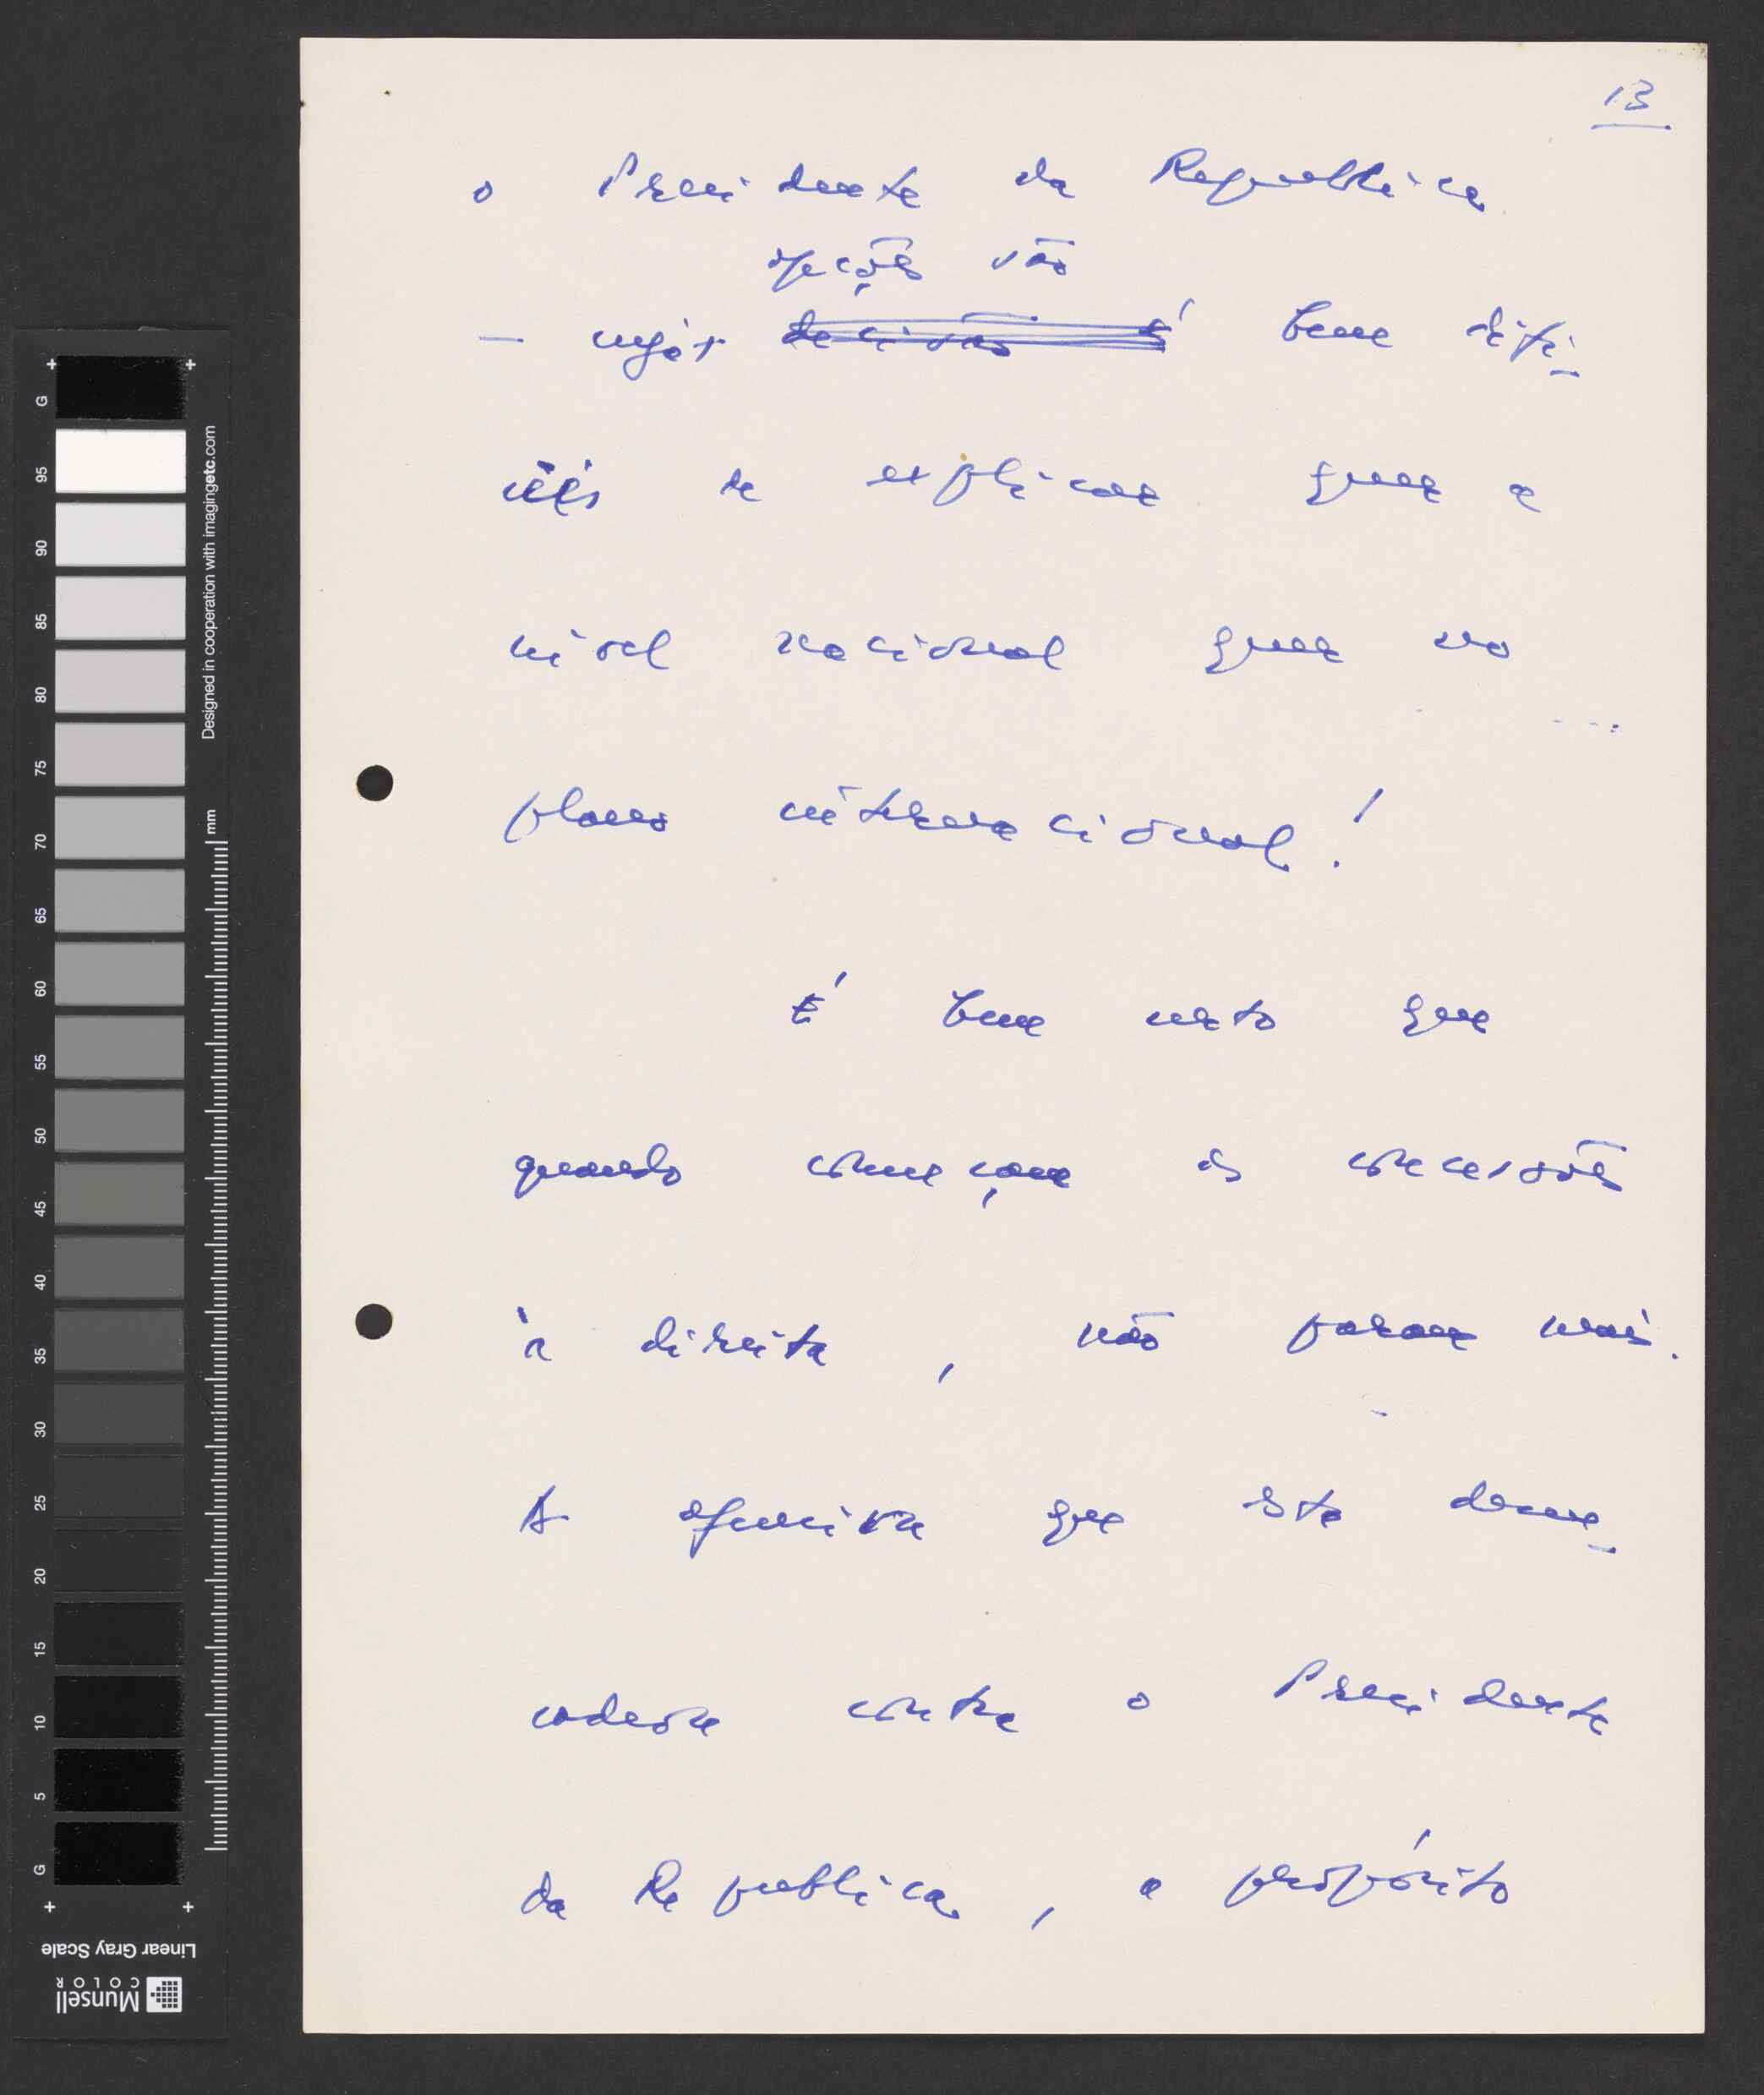 13
o Presidente da Republica
opções são
— cujas decisão é bem difí-
ceis de explicar quer a
nível nacional quer no
plano internacional!
É bem certo que
quando começam as concessões
à direita, não param mais.
A ofensiva que esta desen-
cadeou contra o Presidente
da Republica, a propósito
G 95 90 85 80 75 70 65 60 55 50 45 40 35 30 25 20 15 10 5 G
Designed in cooperation with imagingetc.com
mm
Linear Gray Scale
Munsell
COLOR